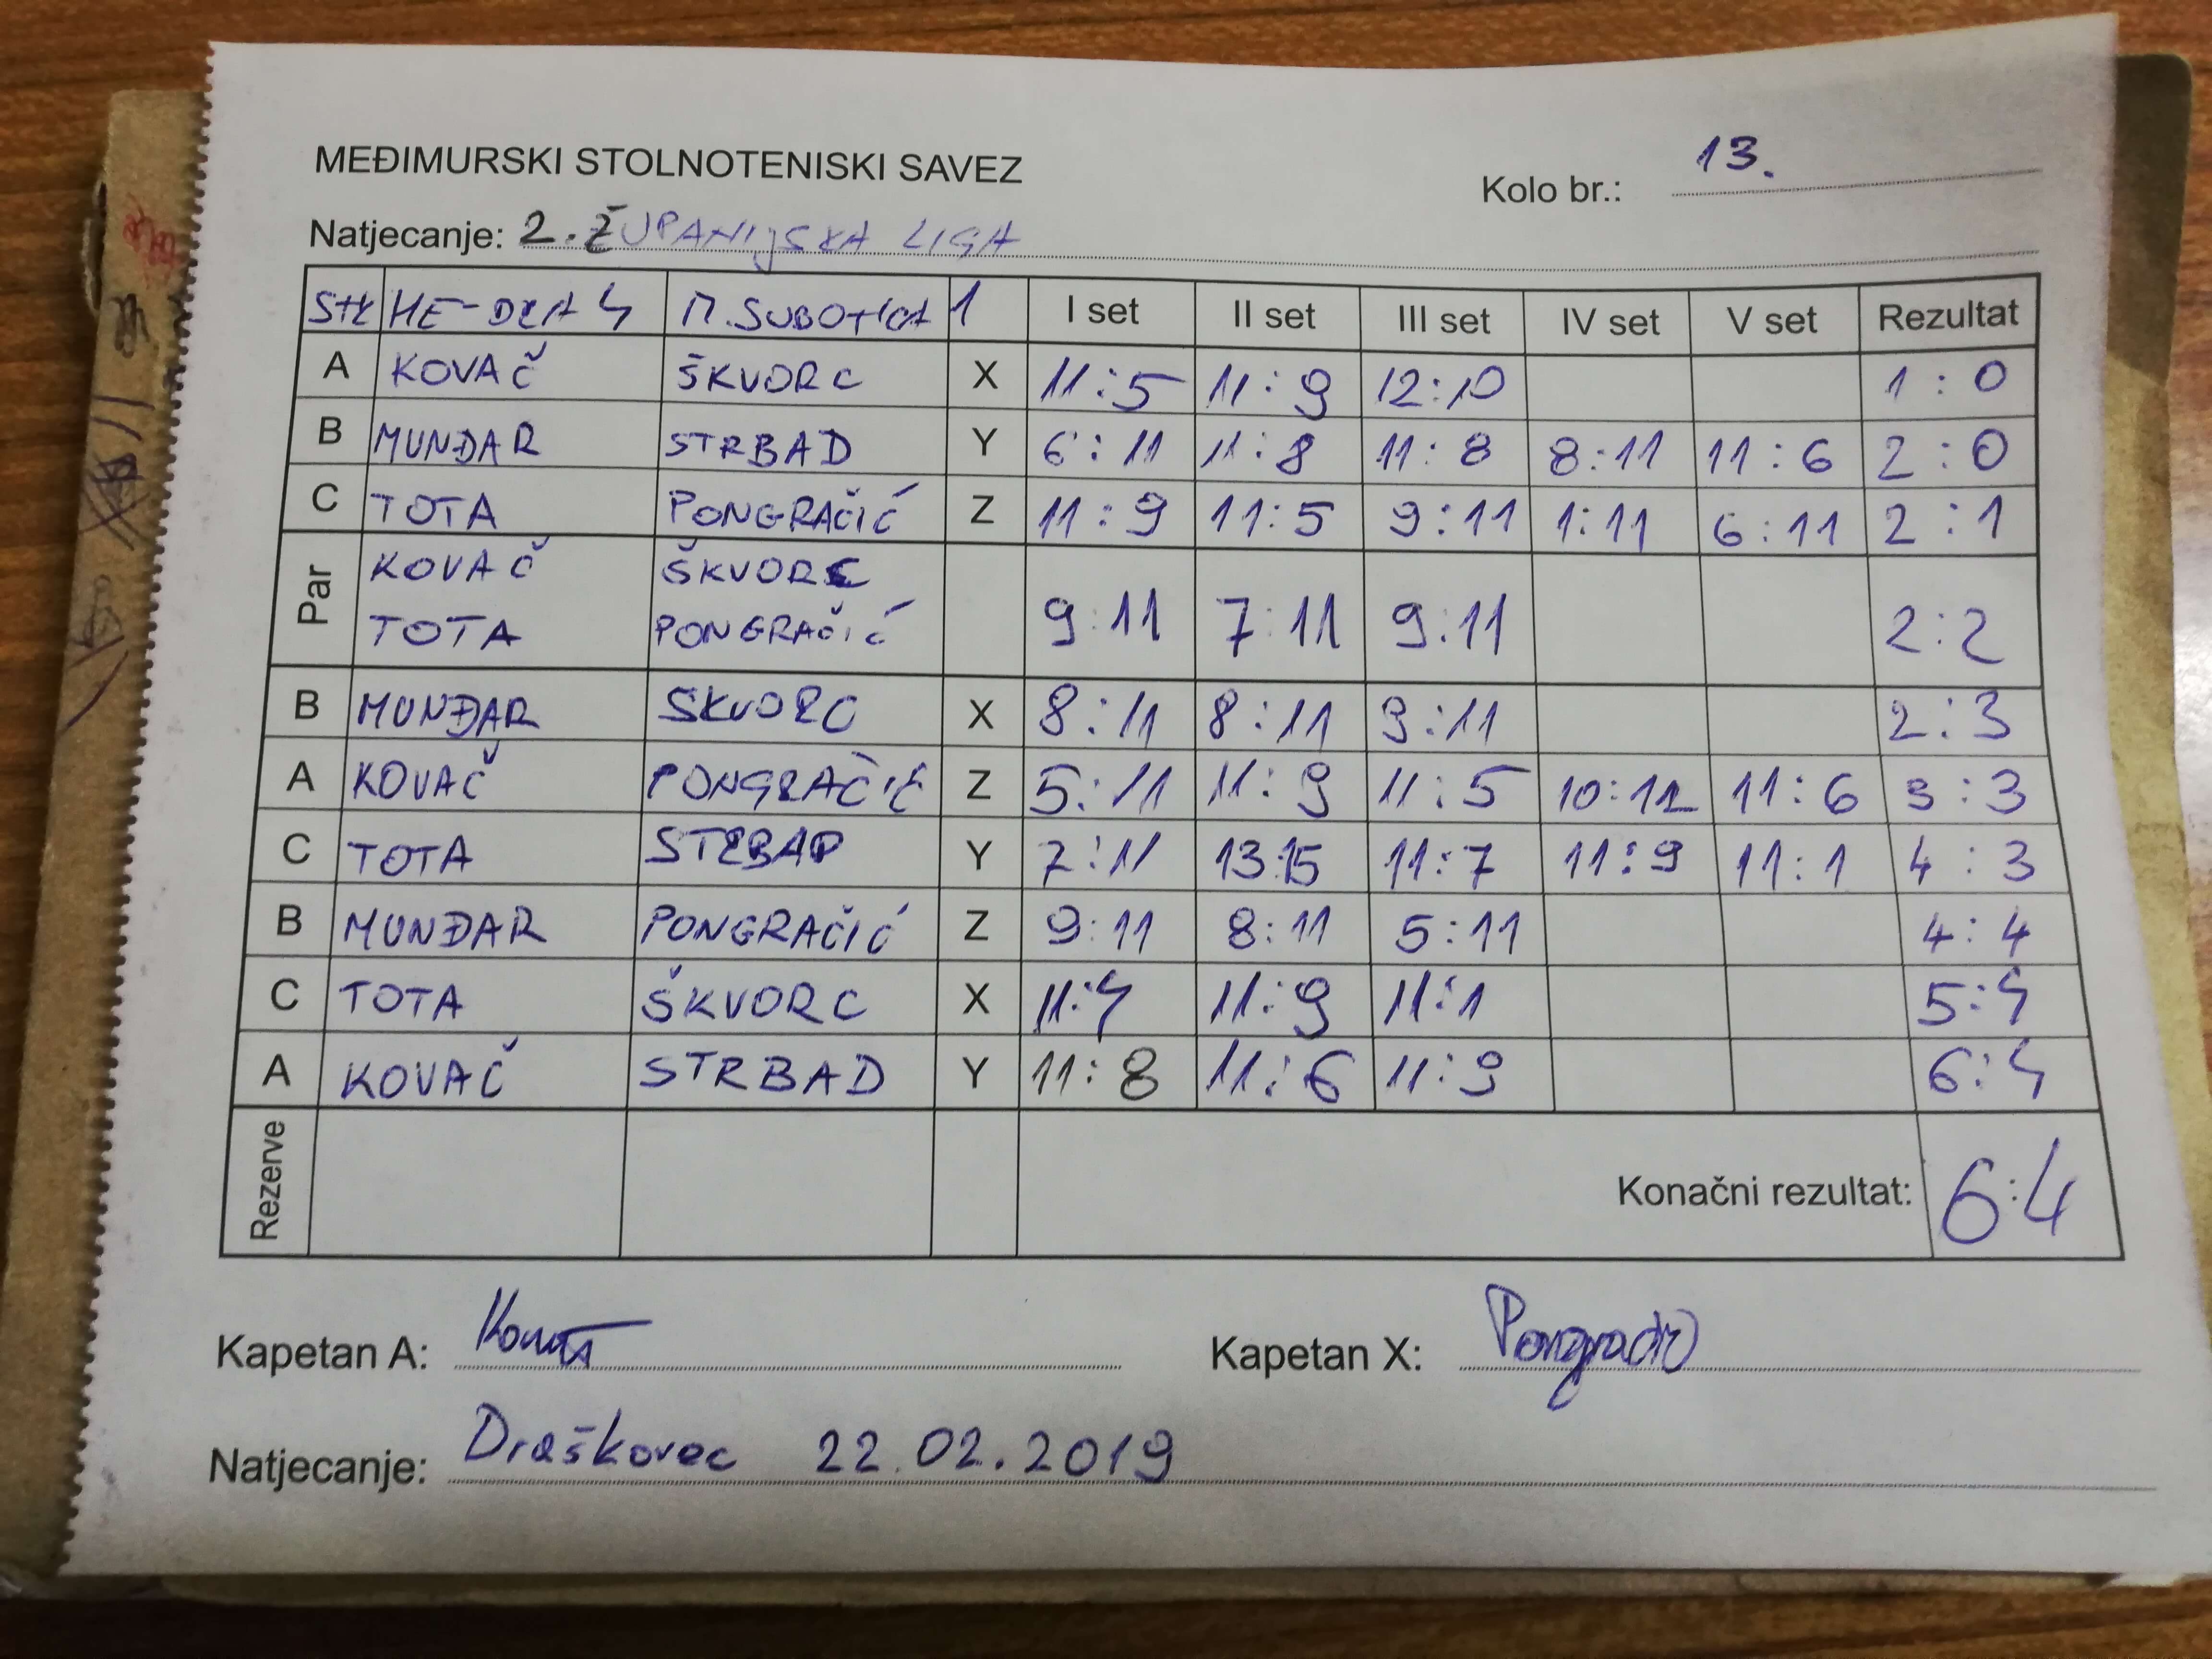 MEĐIMURSKI STOLNOTENISKI SAVEZ
Kolo br.: 13.
Natjecanje: 2. ŽUPANIJSKA LIGA
STK HE-DRA 4 M. SUBOTICA 1 I set II set III set IV set V set Rezultat
A KOVAČ ŠKVORC X 11:5 11:9 12:10 1:0
B MUNĐAR STRBAD Y 6:11 11:8 11:8 8:11 11:6 2:0
C TOTA PONGRAČIĆ Z 11:9 11:5 9:11 1:11 6:11 2:1
Par
KOVAČ ŠKVORC
TOTA PONGRAČIĆ
9:11 7:11 9:11 2:2
B MUNĐAR ŠKVORC X 8:11 8:11 9:11 2:3
A KOVAČ PONGRAČIĆ Z 5:11 11:9 11:5 10:12 11:6 3:3
C TOTA STRBAD Y 7:11 13:15 11:7 11:9 11:1 4:3
B MUNĐAR PONGRAČIĆ Z 9:11 8:11 5:11 4:4
C TOTA ŠKVORC X 11:4 11:9 11:1 5:4
A KOVAČ STRBAD Y 11:8 11:6 11:9 6:4
Rezerve
Konačni rezultat: 6:4
Kapetan A: Kapetan X:
Natjecanje: Draškovec 22.02.2019